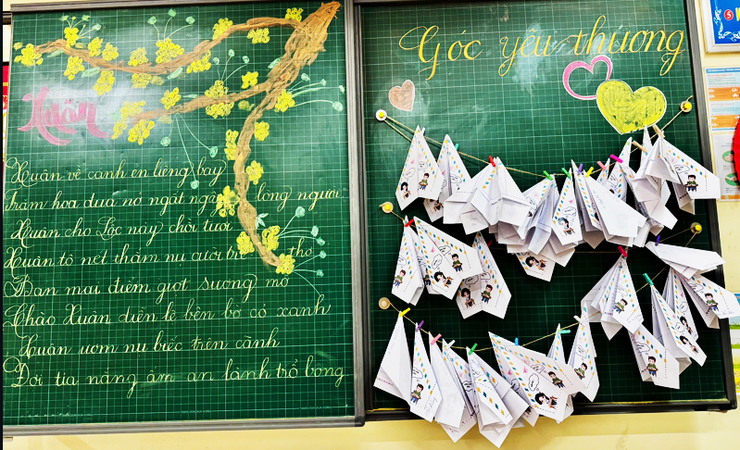 Xuân
Xuân về cánh én liệng bay
Trăm hoa đua nở ngất ngây lòng người
Xuân cho Lộc nảy chồi tươi
Xuân tô nét thắm nụ cười thơ
Ban mai điểm giọt sương mờ
Chào Xuân diễn lệ bên bờ cỏ xanh
Xuân ươm nụ biếc trên cành
Đợi tia nắng ấm an lành trổ bông
Góc yêu thương